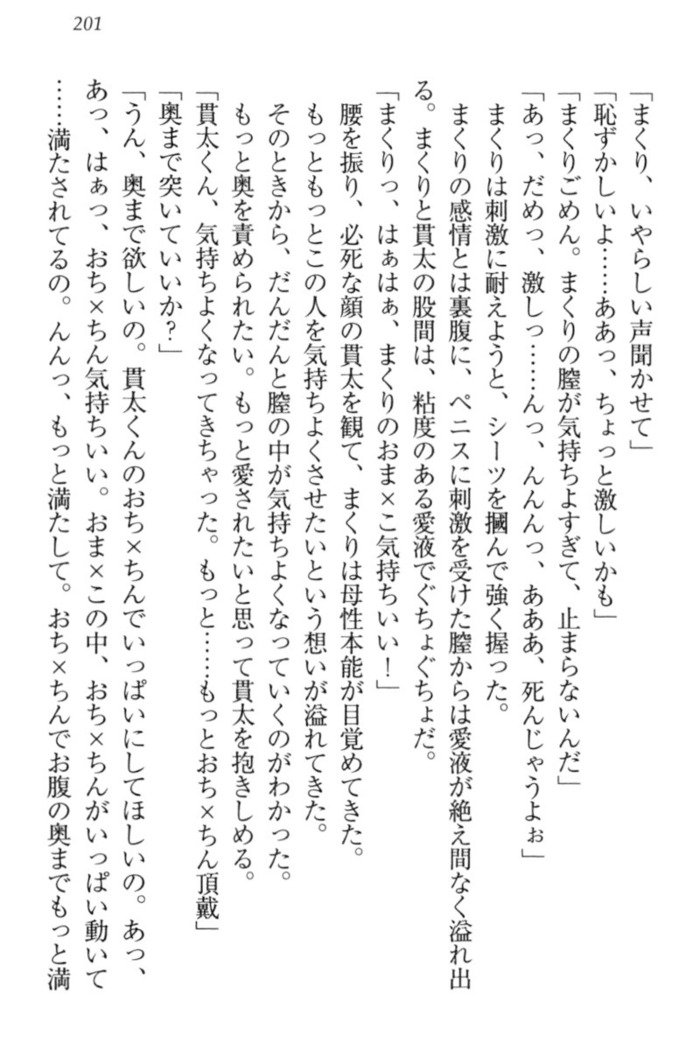 201
「まくり、いやらしい声聞かせて」
「恥ずかしいよ……ああっ、ちょっと激しいかも」
「まくりごめん。まくりの膣が気持ちよすぎて、止まらないんだ」
「あっ、だめっ、激しっ……んっ、んんんっ、あああ、死んじゃうよぉ」
まくりは刺激に耐えようと、シーツを摑んで強く握った。
まくりの感情とは裏腹に、ペニスに刺激を受けた膣からは愛液が絶え間なく溢れ出
る。まくりと貫太の股間は、粘度のある愛液でぐちょぐちょだ。
「まくりっ、はぁはぁ、まくりのおま×こ気持ちいい！」
腰を振り、必死な顔の貫太を観て、まくりは母性本能が目覚めてきた。
もっともっとこの人を気持ちよくさせたいという想いが溢れてきた。
そのときから、だんだんと膣の中が気持ちよくなっていくのがわかった。
もっと奥を責められたい。もっと愛されたいと思って貫太を抱きしめる。
「貫太くん、気持ちよくなってきちゃった。もっと……もっとおち×ちん頂戴」
「奥まで突いていいか？」
「うん、奥まで欲しいの。貫太くんのおち×ちんでいっぱいにしてほしいの。あっ、
あっ、はぁっ、おち×ちん気持ちいい。おま×この中、おち×ちんがいっぱい動いて
……満たされてるの。んんっ、もっと満たして。おち×ちんでお腹の奥までもっと満